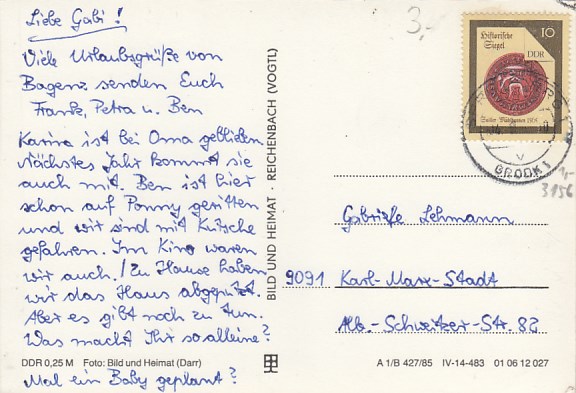 Liebe Gabi!
Viele Urlaubsgrüße von
Bagenz senden Euch
Frank, Petra u. Ben
Karina ist bei Oma geblieben.
Nächstes Jahr kommt sie
auch mit. Ben ist hier
schon auf Ponny geritten
und wir sind mit Kutsche
gefahren. Im Kino waren
wir auch. / Zu Hause haben
wir das Haus abgeputzt.
Aber es gibt noch zu tun.
Was macht Ihr so alleine?
DDR 0,25 M Foto: Bild und Heimat (Darr)
Mal ein Baby geplant?
BILD UND HEIMAT · REICHENBACH (VOGTL)
3,-
Historische
Siegel
10
DDR
BRODK
3156
Gabriele Lehmann
9091 Karl-Marx-Stadt
Alb.-Schweitzer-Str. 82
A 1/B 427/85 IV-14-483 01 06 12 027